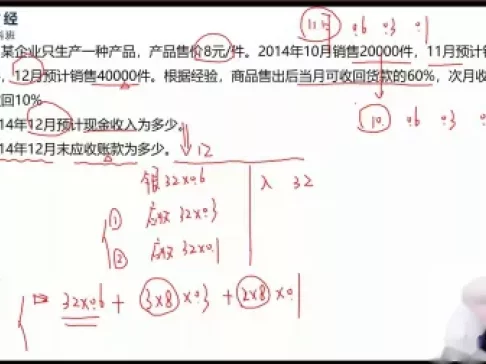 经
科班
11月 0.6 0.3 0.1
某企业只生产一种产品，产品售价8元/件。2014年10月销售20000件，11月预计销
，12月预计销售40000件。根据经验，商品售出后当月可收回货款的60%，次月收
回10%
10 0.6 0.3 0
14年12月预计现金收入为多少。
14年12月末应收账款为多少。
12
银 32×0.6 入 32
① 应收 32×0.3
② 应收 32×0.1
32×0.6 + 3×8×0.3 + 2×8×0.1